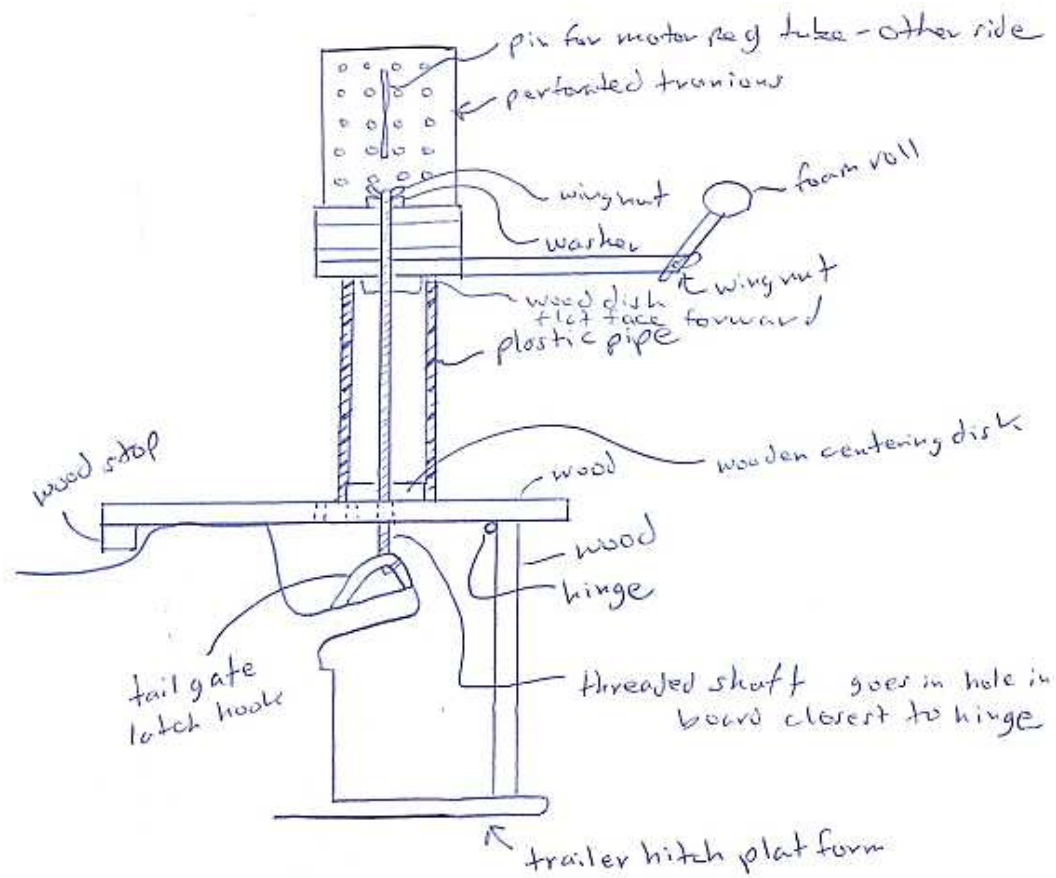 pin for motor peg tube - other side
perforated trunions
foam roll
wingnut
washer
wingnut
wood disk
flat face forward
plastic pipe
wood stop
wood
wooden centering disk
wood
hinge
tail gate
latch hook
threaded shaft goes in hole in
board closest to hinge
trailer hitch platform